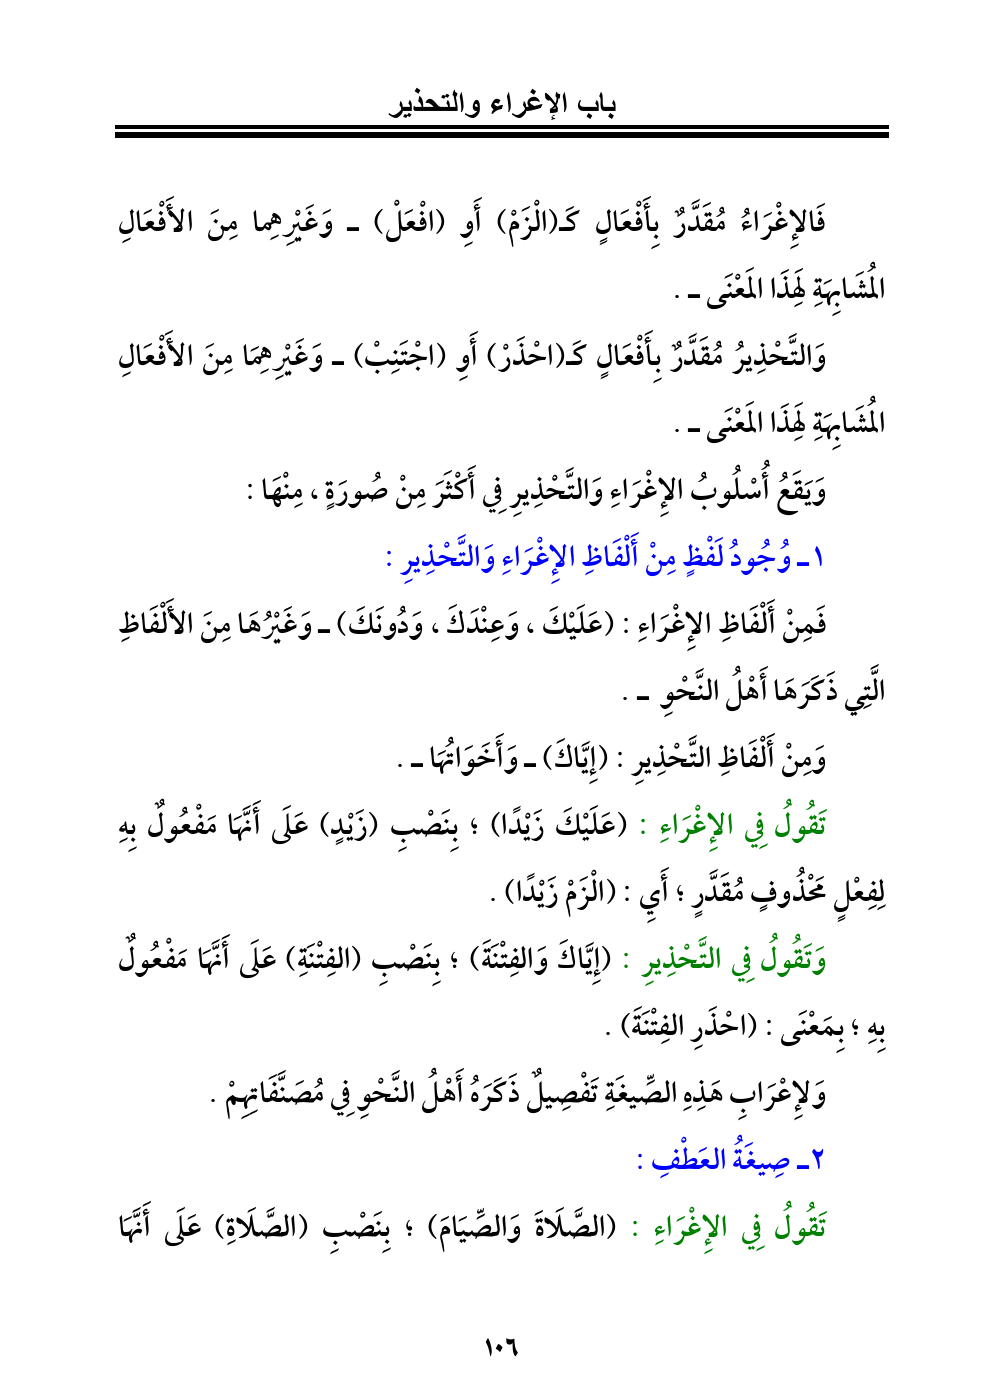 باب الإغراء والتحذير
فَالإِغْرَاءُ مُقَدَّرٌ بِأَفْعَالٍ كَـ(الْزَمْ) أَوِ (افْعَلْ) ـ وَغَيْرِهِما مِنَ الأَفْعَالِ
المُشَابِهَةِ لِهَذَا المَعْنَى ـ .
وَالتَّحْذِيرُ مُقَدَّرٌ بِأَفْعَالٍ كَـ(احْذَرْ) أَوِ (اجْتَنِبْ) ـ وَغَيْرِهِمَا مِنَ الأَفْعَالِ
المُشَابِهَةِ لِهَذَا المَعْنَى ـ .
وَيَقَعُ أُسْلُوبُ الإِغْرَاءِ وَالتَّحْذِيرِ فِي أَكْثَرَ مِنْ صُورَةٍ ، مِنْهَا :
١ـ وُجُودُ لَفْظٍ مِنْ أَلْفَاظِ الإِغْرَاءِ وَالتَّحْذِيرِ :
فَمِنْ أَلْفَاظِ الإِغْرَاءِ : (عَلَيْكَ ، وَعِنْدَكَ ، وَدُونَكَ) ـ وَغَيْرُهَا مِنَ الأَلْفَاظِ
الَّتِي ذَكَرَهَا أَهْلُ النَّحْوِ ـ .
وَمِنْ أَلْفَاظِ التَّحْذِيرِ : (إِيَّاكَ) ـ وَأَخَوَاتُهَا ـ .
تَقُولُ فِي الإِغْرَاءِ : (عَلَيْكَ زَيْدًا) ؛ بِنَصْبِ (زَيْدٍ) عَلَى أَنَّهَا مَفْعُولٌ بِهِ
لِفِعْلٍ مَحْذُوفٍ مُقَدَّرٍ ؛ أَيِ : (الْزَمْ زَيْدًا) .
وَتَقُولُ فِي التَّحْذِيرِ : (إِيَّاكَ وَالفِتْنَةَ) ؛ بِنَصْبِ (الفِتْنَةِ) عَلَى أَنَّهَا مَفْعُولٌ
بِهِ ؛ بِمَعْنَى : (احْذَرِ الفِتْنَةَ) .
وَلإِعْرَابِ هَذِهِ الصِّيغَةِ تَفْصِيلٌ ذَكَرَهُ أَهْلُ النَّحْوِ فِي مُصَنَّفَاتِهِمْ .
٢ـ صِيغَةُ العَطْفِ :
تَقُولُ فِي الإِغْرَاءِ : (الصَّلَاةَ وَالصِّيَامَ) ؛ بِنَصْبِ (الصَّلَاةِ) عَلَى أَنَّهَا
١٠٦